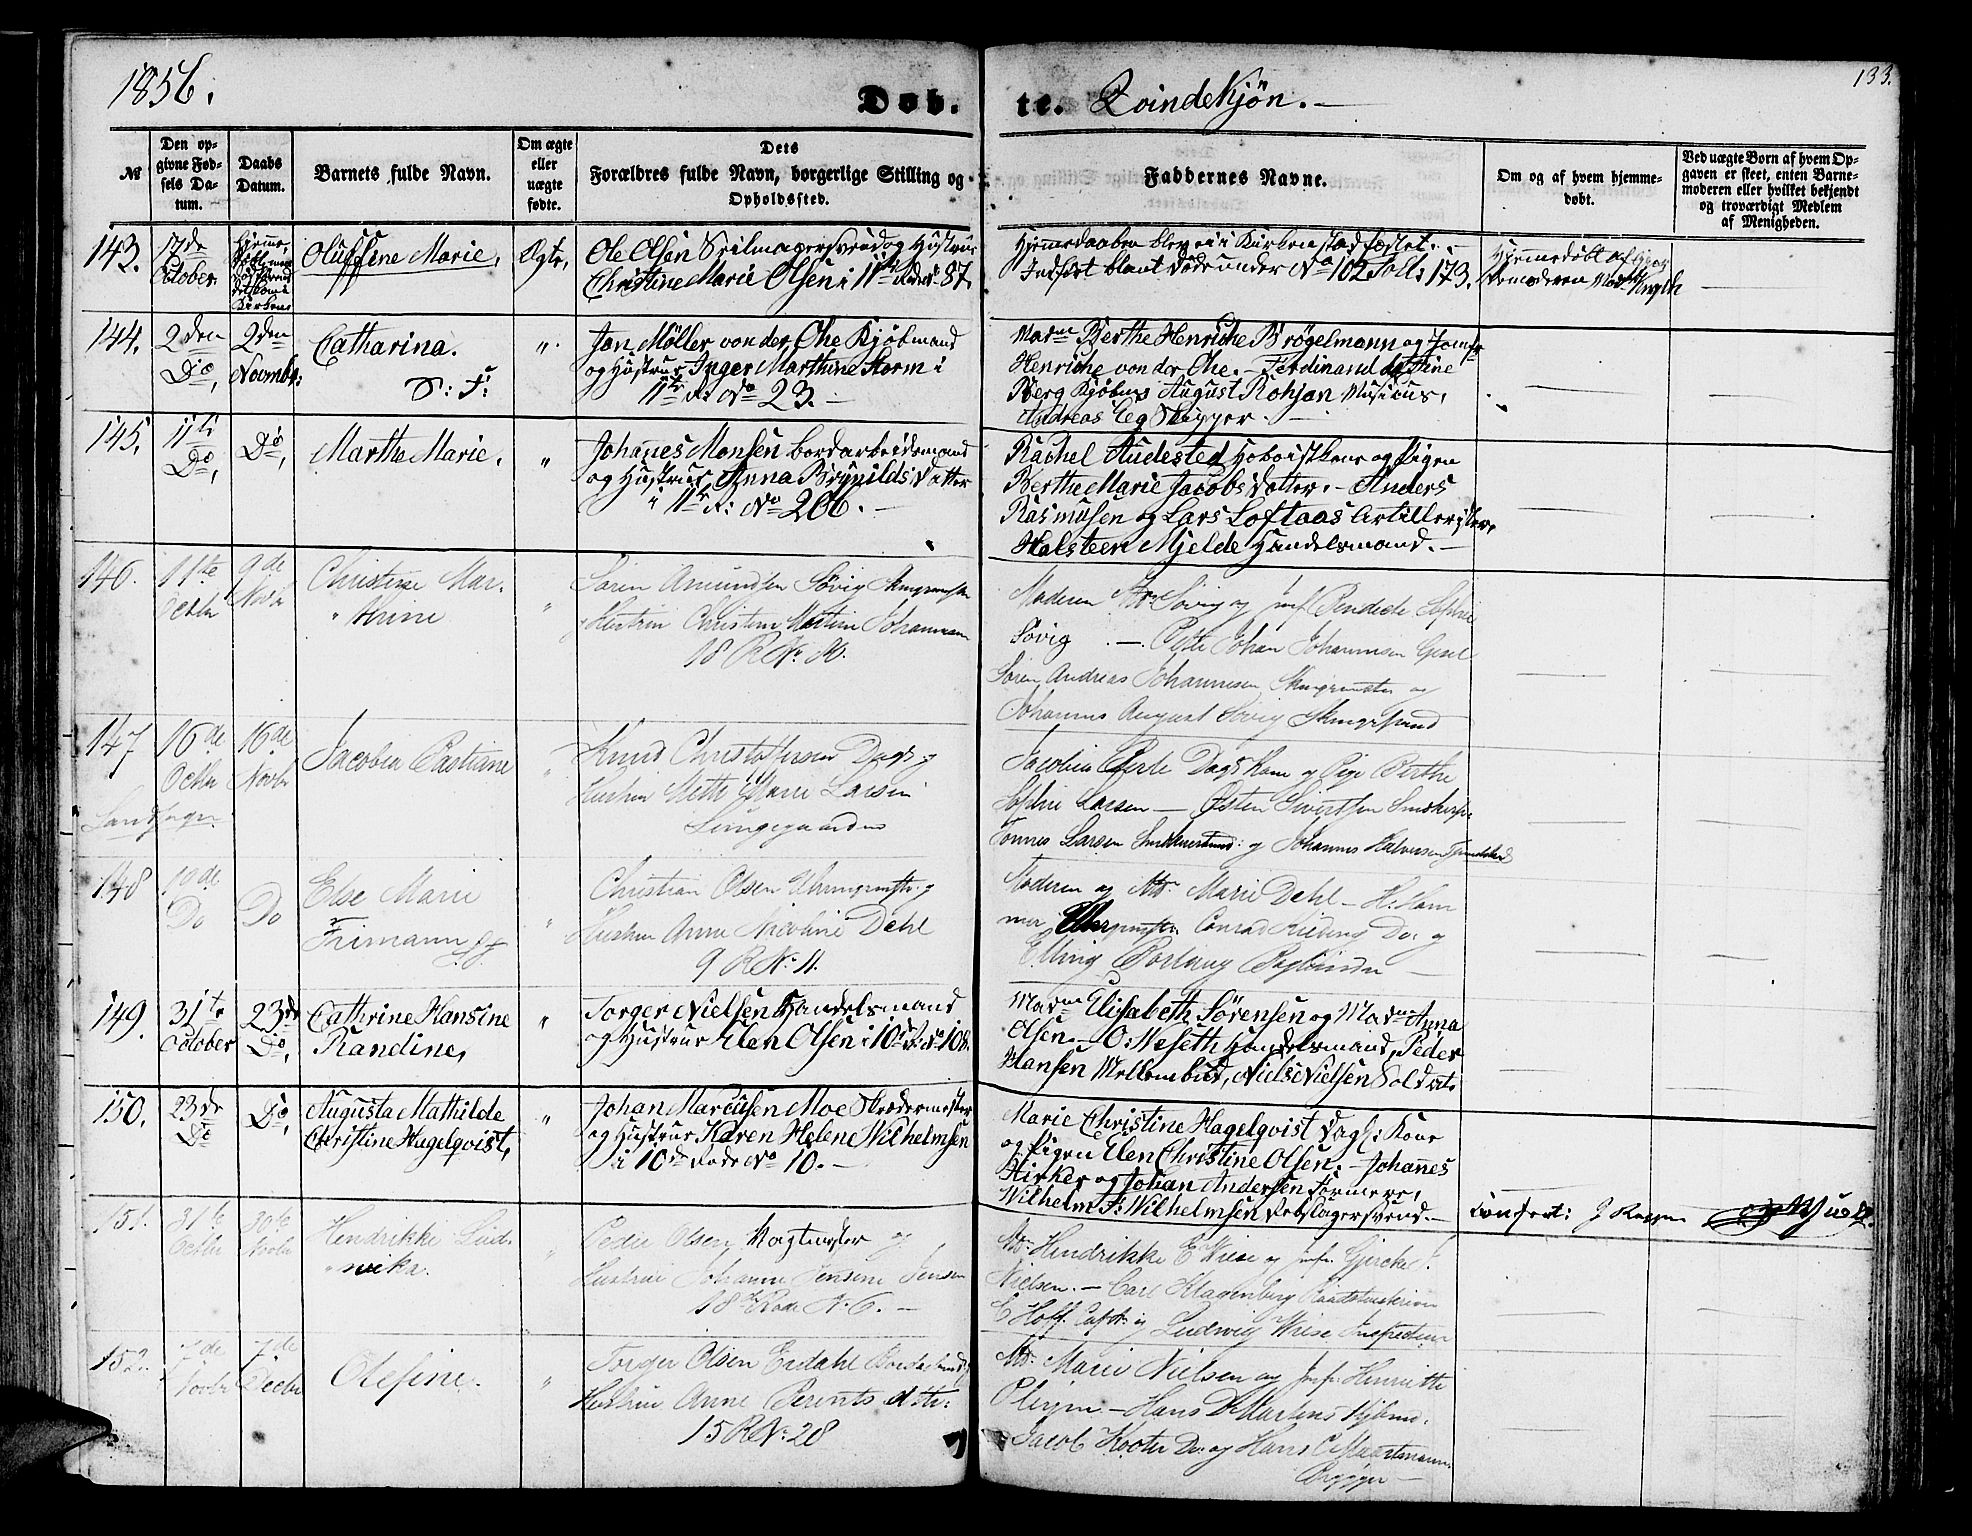 1856.
133.
Døb. te. Qvindekjøn.
№
Den opgivne Fødsels Datum.
Daabs Datum.
Barnets fulde Navn.
Om ægte eller uægte fødte.
Dets Forældres fulde Navn, borgerlige Stilling og Opholdssted.
Faddernes Navne.
Om og af hvem hjemmedøbt.
Ved uægte Børn af hvem Opgaven er skeet, enten Barnemoderen eller hvilket bekjendt og troværdigt Medlem af Menigheden.
143. 17de October
Oluffine Marie, Ægte,
Ole Olsen Seilmagersvend og Hustrue
Christine Marie Olsen i 11te Rode № 87.
Hjemmedaaben blev ei i Kirken stadfæstet. -
Indført blant Døde under No 102 Foll: 173.
Hjemmedøbt af Gjor
demoderen Mad:
144. 2den Do, 2den Novmbr:
Catharina.
D: F: "
Jan Møller von der Ohe Kjøbmand
og Hustrue Inger Marthine Storm i
11te R: No 23. -
Madm Berthe Henriche Brøgelmann og Jomfr
Henriche von der Ohe. - Ferdinand de Fine
Berg Kjøbm, August Rohjan Musicus,
Andreas Eeg Skipper.
145. 11te Do, Do,
Marthe Marie, "
Johannes Monsen bordarbeidsmand
og Hustrue Anna Brynilds Datter
i 11te R: No 206. -
Rachel Audested Hoboistkone og Pigen
Berthe Marie Jacobs Datter. - Anders
Rasmusen og Lars Loftaas Artillerister,
Halsteen Mjelde Handelsmand. -
146. 11te Octbr 9de Novbr
Christense Mar-
thine "
Søren Amundsen Søvig
Hustru Christine Martine Johannesen
18 R No
Moderen Md Søvig og Jmf Bendicte Sophie
Søvig. - Johan Johannesen
Søren Andreas Johannesen og
Johannes August Søvig
147 16de Octbr 16de Novbr
Landsogn
Jacobia Bastiane "
Knud Christoffersen Dags og
Hustru Mette Marie Larsen
Lungegaarden
Jacobia Dags Kone og Pige Berthe
Sophie Larsen - Østen Sivertsen
Tønnes Larsen og Johannes Halvorsen
148 19de Do Do
Else Marie
Frimann "
Christian Olsen Uhrmgrmstr. og
Hustru Anne Nicoline Dahl
9 R No 11.
Moderen og Md Marie Dahl - H. Ham
mer Conrad Do og
Elling
149. 31te October 23de Do,
Cathrine Hansine
Randine, "
Torger Nielsen Handelsmand
og Hustrue Elen Olsen i 10de R: No 108.
Madm Elisabeth Sørensen og Madm Anna
Olsen. - O: Neseth Handelsmand, Peder
Hansen Mellombud, Niels Nielsen Soldat.
150. 23de Do Do,
Augusta Mathilde
Christine Hagelqvist, "
Johan Marcusen Moe Skredermester
og Hustrue Karen Helene Wilhelmsen
i 10de Rode No 10. -
Marie Christine Hagelqvist Dagl: Kone
og Pigen Elen Christine Olsen. - Johannes
Kirker og Johan Andersen Formere,
Wilhelm F: Wilhelmsen Rebslagersvend. -
151. 31te Octbr 30te Novbr
Hendrikke Lud-
vika. "
Peder Olsen Vagtmester og
Hustrue Johanne Jensine Jensen
18de Rode No 6. -
Md. Hendrikke E Wiese og Jmfr.
Nielsen. - Carl Klagenberg
E Hoff Capt. og Ludwig Wiese
152. 7de Novbr 7de Decbr
Olefine. "
Torger Olsen Erdahl
Hustru Anne Berents dtr:
15 R No 28
Md. Marie Nielsen og Jmfr. Henriette
- Hans D Martens Kjøbmd.
Jacob Kooter Do og Hans C
Brygger -